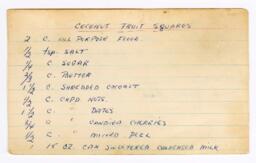 COCONUT FRUIT SQUARES
2 C. ALL PURPOSE FLOUR
1/2 tsp. SALT
3/4 C. SUGAR
3/4 C. BUTTER
1 1/2 C. SHREDDED COCONUT
1/2 C. CHPD. NUTS.
1 " DATES
3/4 " " CANDIED CHERRIES
1/2 C. " MIXED PEEL
15 OZ. CAN SWEETENED CONDENSED MILK